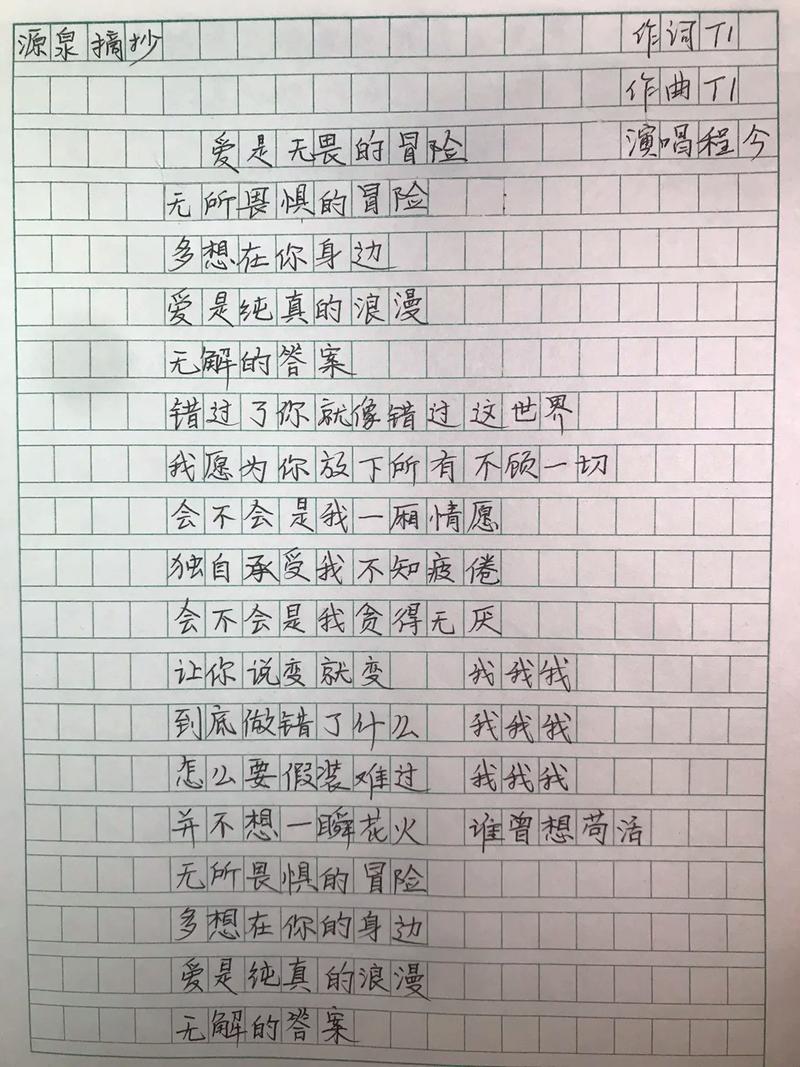 源泉摘抄 作词T1
作曲T1
爱是无畏的冒险 演唱程今
无所畏惧的冒险
多想在你身边
爱是纯真的浪漫
无解的答案
错过了你就像错过这世界
我愿为你放下所有不顾一切
会不会是我一厢情愿
独自承受我不知疲倦
会不会是我贪得无厌
让你说变就变 我我我
到底做错了什么 我我我
怎么要假装难过 我我我
并不想一瞬花火 谁曾想苟活
无所畏惧的冒险
多想在你的身边
爱是纯真的浪漫
无解的答案